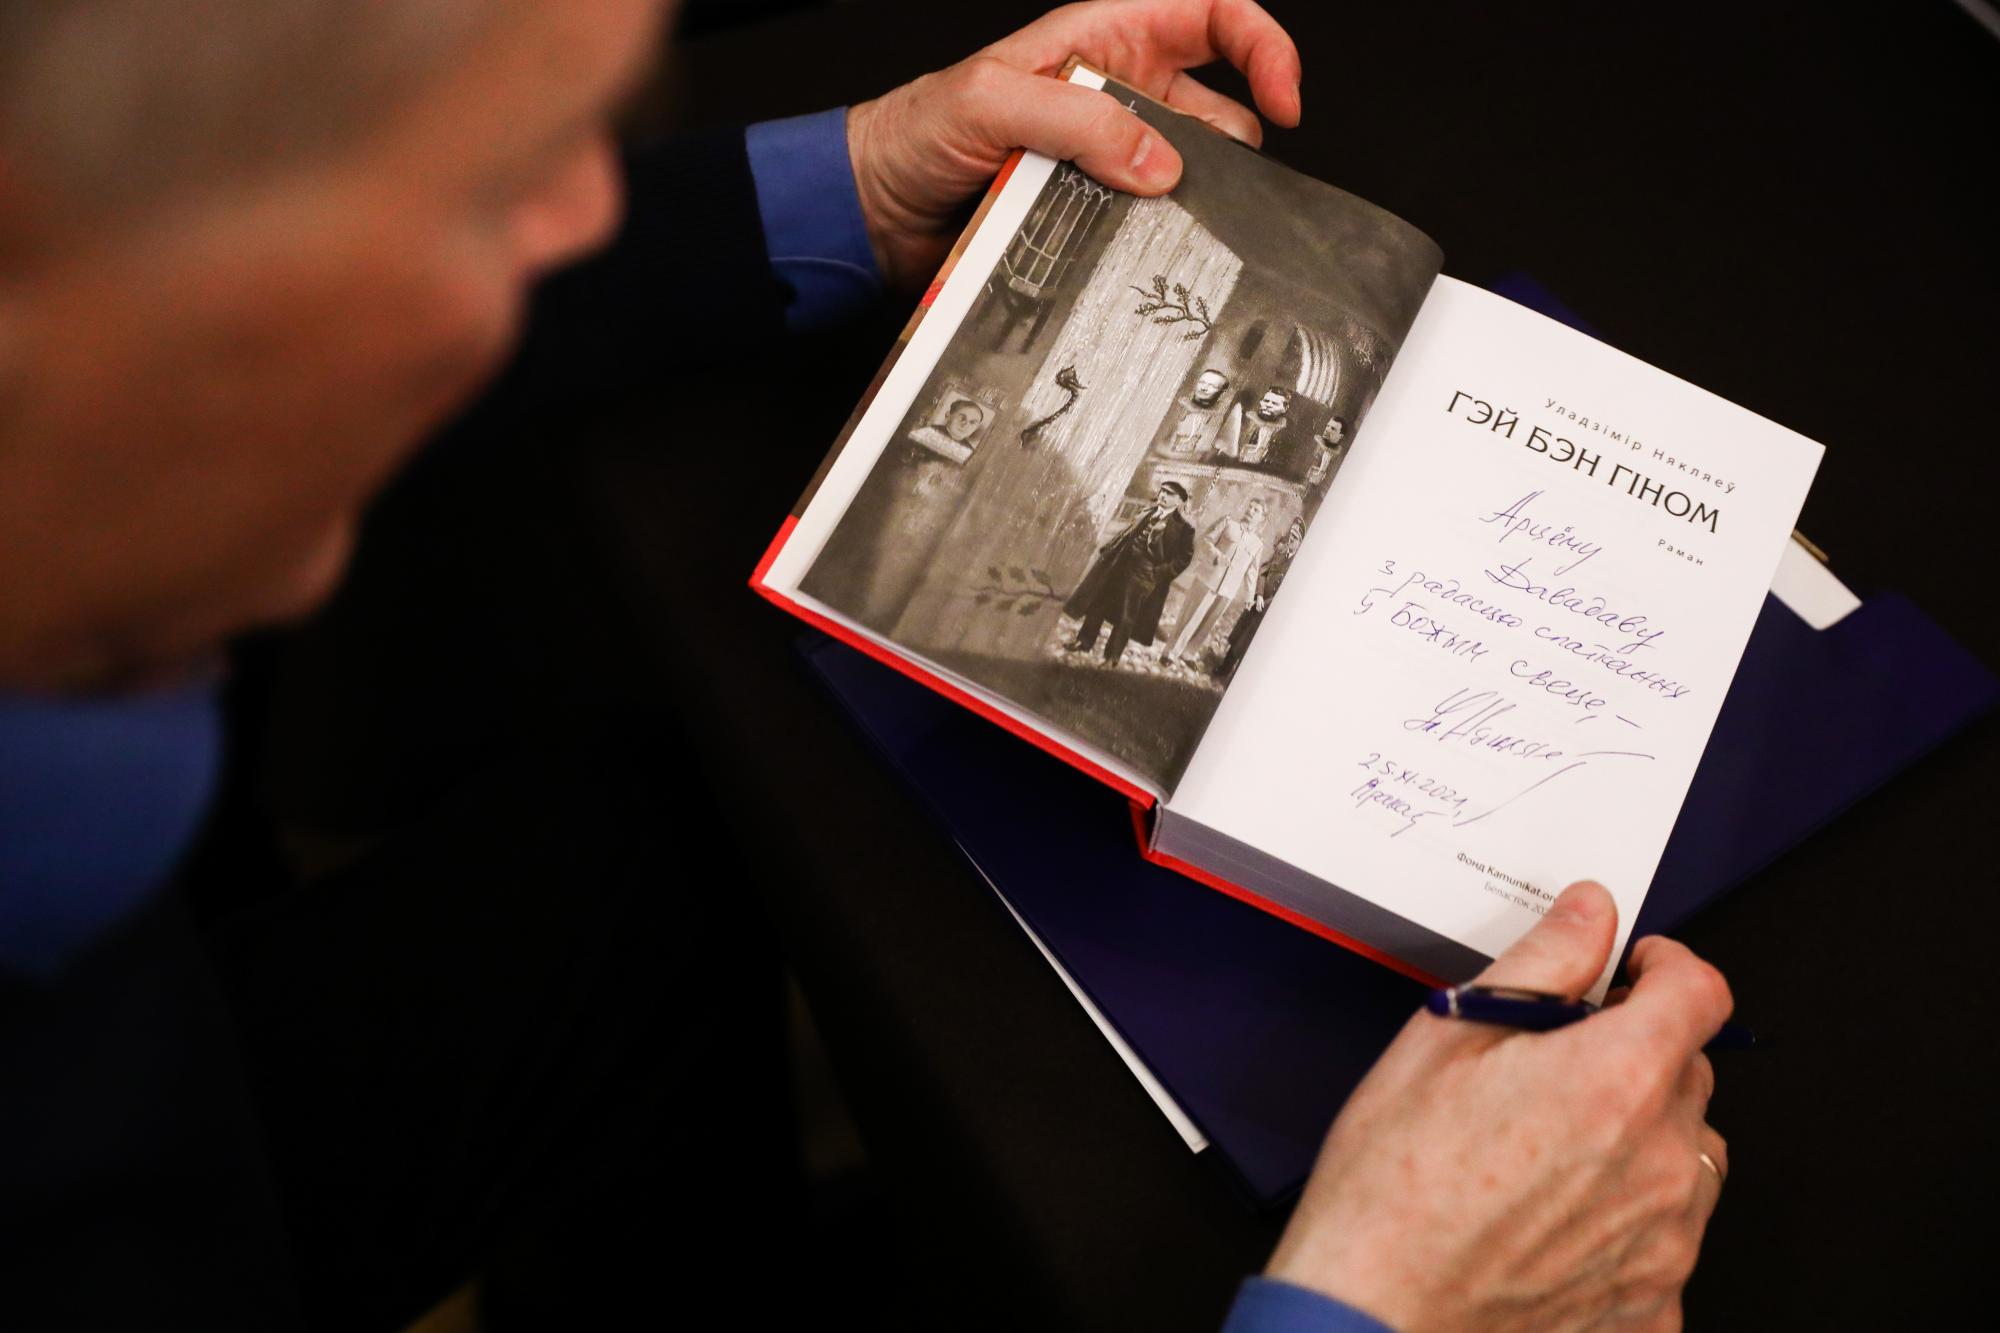 Уладзімір Някляеў
ГЭЙ БЭН ГІНОМ
Раман
Арцёму
Давадаву
з радасцю спаткання
ў Божым свеце, –
Ул. Някляеў
25.XI.2021,
Прага
Фонд Kamunikat.org
Беласток